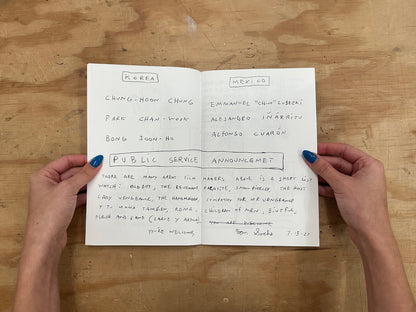 KOREA
CHUNG-HOON CHUNG
PARK CHAN-WOOK
BONG JOON-HO
MEXICO
EMMANUEL "CHIVO" LUBEZKI
ALEJANDRO IÑÁRRITU
ALFONSO CUARÓN
PUBLIC SERVICE ANNOUNCEMENT
THERE ARE MANY GREAT FILM MAKERS, ABOVE IS A SHORT LIST
WATCH: OLDBOY, THE REVENANT, PARASITE, SNOWPIERCER, THE HOST
LADY VENGEANCE, THE HANDMAIDEN, SYMPATHY FOR MR VENGEANCE
Y TU MAMA TAMBIEN, ROMA, CHILDREN OF MEN, BIUTIFUL,
FLESH AND SAND (CARNE Y ARENA)
YOU'RE WELCOME,
Tom Sachs 7-13-21